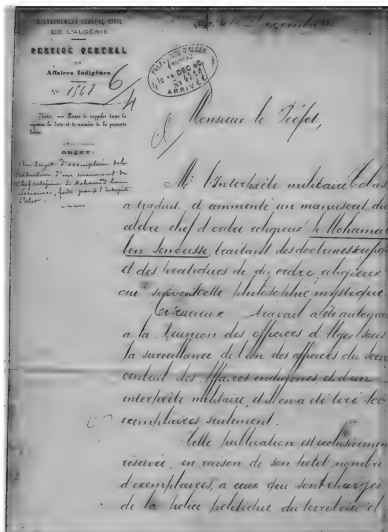 GOUVERNEMENT GÉNÉRAL CIVIL
DE L'ALGÉRIE
SERVICE CENTRAL
DES
Affaires Indigènes
N° 1548
6/4
Alger, le
PRÉFECTURE D'ALGER
14 DEC 80
ARRIVÉE
NOTA. — Prière de rappeler dans la
réponse la date et le numéro de la présente
lettre.
OBJET:
Monsieur le Préfet,
Mr l'Interprète militaire Colas
a traduit et commenté un manuscrit du
célèbre chef d'ordre religieux, Mohamed
ben Senoussi, traitant des doctrines
et des pratiques de dix ordres religieux
qui suivent cette philosophie mystique.
Ce curieux travail a été autographié
à la Réunion des officiers d'Alger sous
la surveillance de l'un des officiers du service
central des Affaires indigènes, et d'un
interprète militaire, il en a été tiré 100
exemplaires seulement.
Cette publication est exclusivement
réservée, en raison de son petit nombre
d'exemplaires, à ceux qui sont chargés
de la police politique du territoire et